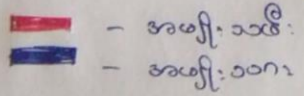 - အမျိုးသမီး
- အမျိုးသား